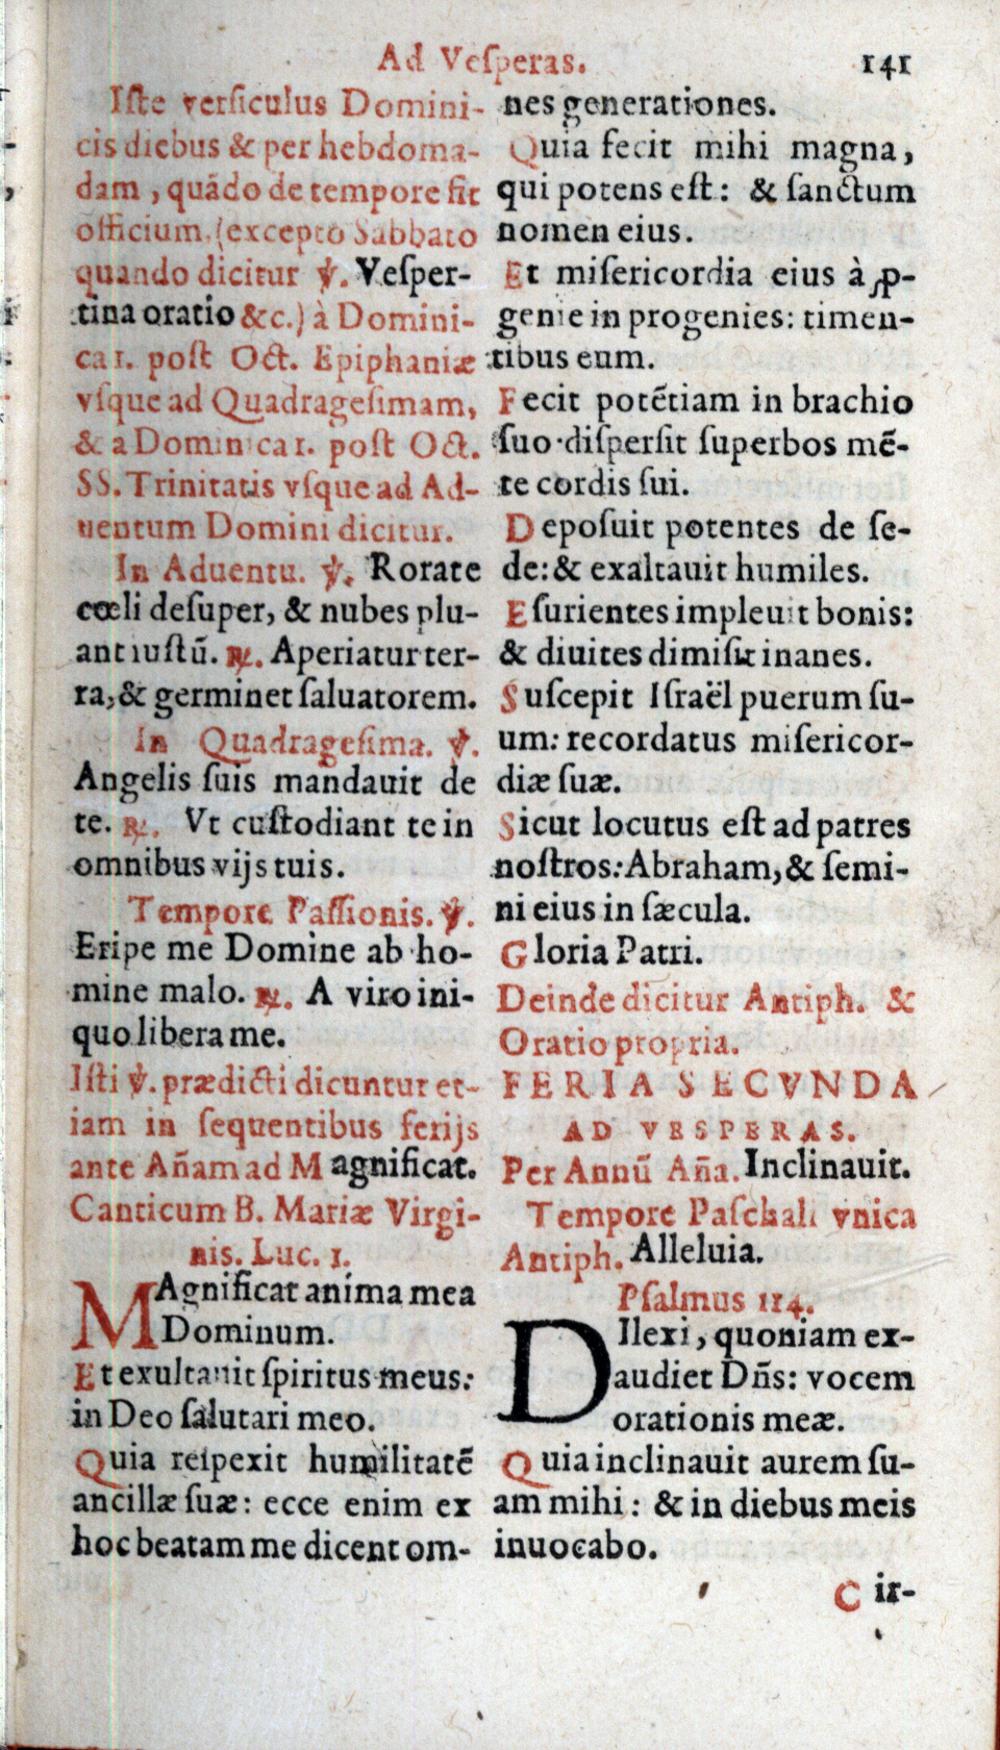 Ad Veſperas. 141
Iſte verſiculus Domini-
cis diebus & per hebdoma-
dam, quãdo de tempore fit
officium (excepto Sabbato
quando dicitur ℣. Veſper-
tina oratio &c.) à Domini-
ca 1. poſt Oct. Epiphaniæ
vſque ad Quadrageſimam,
& a Dominica 1. poſt Oct.
SS. Trinitatis vſque ad Ad-
uentum Domini dicitur.
In Aduentu. ℣. Rorate
cœli deſuper, & nubes plu-
ant iuſtũ. ℟. Aperiatur ter-
ra, & germinet ſaluatorem.
In Quadrageſima. ℣.
Angelis ſuis mandauit de
te. ℟. Vt cuſtodiant te in
omnibus vijs tuis.
Tempore Paſſionis. ℣.
Eripe me Domine ab ho-
mine malo. ℟. A viro ini-
quo libera me.
Iſti ℣. prædicti dicuntur et-
iam in ſequentibus ferijs
ante Añam ad Magnificat.
Canticum B. Mariæ Virgi-
nis. Luc. 1.
MAgnificat anima mea
Dominum.
Et exultauit ſpiritus meus:
in Deo ſalutari meo.
Quia reſpexit humilitatẽ
ancillæ ſuæ: ecce enim ex
hoc beatam me dicent om-
nes generationes.
Quia fecit mihi magna,
qui potens eſt: & ſanctum
nomen eius.
Et miſericordia eius à ꝓ-
genie in progenies: timen-
tibus eum.
Fecit potẽtiam in brachio
ſuo· diſperſit ſuperbos mẽ-
te cordis ſui.
Depoſuit potentes de ſe-
de: & exaltauit humiles.
Eſurientes impleuit bonis:
& diuites dimiſit inanes.
Suſcepit Iſraël puerum ſu-
um: recordatus miſericor-
diæ ſuæ.
Sicut locutus eſt ad patres
noſtros: Abraham, & ſemi-
ni eius in ſæcula.
Gloria Patri.
Deinde dicitur Antiph. &
Oratio propria.
FERIA SECVNDA
AD VESPERAS.
Per Annũ Aña. Inclinauit.
Tempore Paſchali vnica
Antiph. Alleluia.
Pſalmus 114.
DIlexi, quoniam ex-
audiet Dñs: vocem
orationis meæ.
Quia inclinauit aurem ſu-
am mihi: & in diebus meis
inuocabo.
Cir-